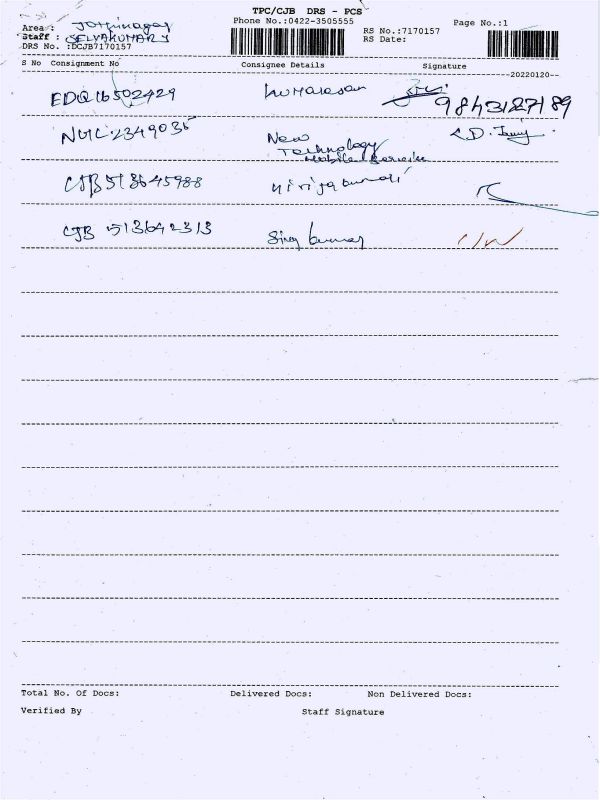 TPC/CJB DRS - PCS
Phone No.:0422-3505555
Page No.:1
Area : Jothinagar
RS No.:7170157
Staff : SELVAKUMARJ
RS Date:
DRS No. :DCJB7170157
S No Consignment No Consignee Details Signature
20220120
EDQ16502429 Kumaresan 9843127189
2349035 New
Technology
Mobile Service
CJB513645988
CJB 513642313 Siva kumar
Total No. Of Docs: Delivered Docs: Non Delivered Docs:
Verified By Staff Signature